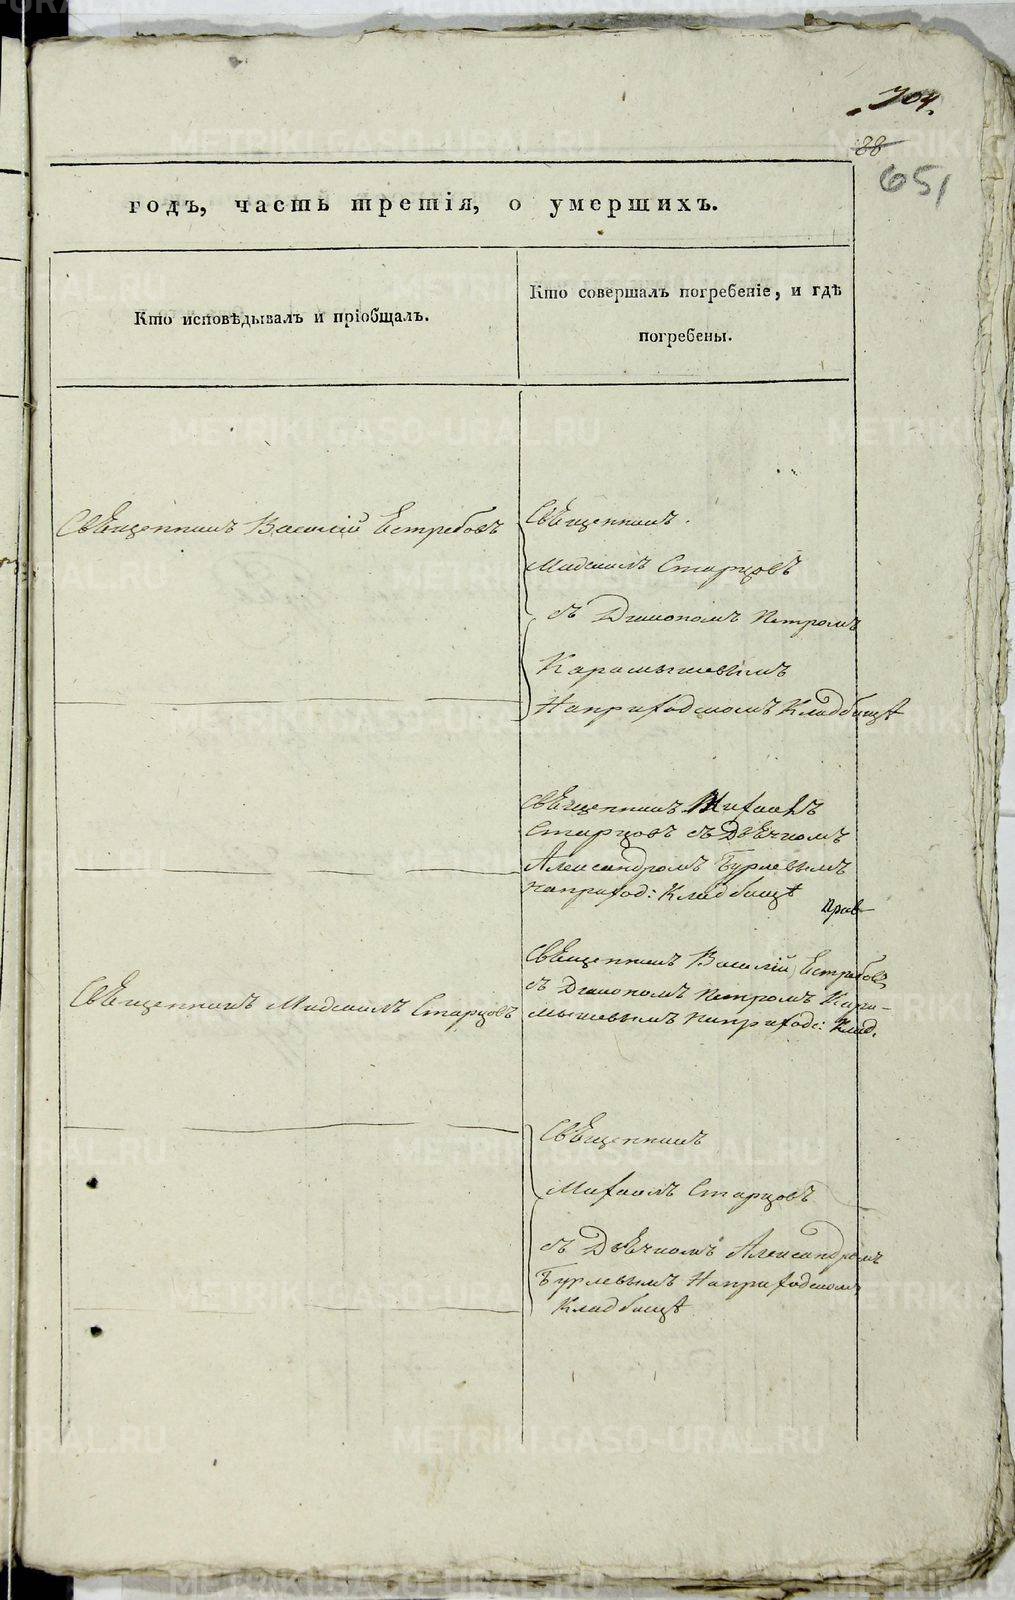 704.
88
651
годъ, часть третія, о умершихъ.
Кто исповѣдывалъ и пріобщалъ.
Кто совершалъ погребеніе, и гдѣ
погребены.
Свѣщенникъ Василій Естребовъ
Свѣщенникъ
Михаилъ Старцовъ
съ Диакономъ Петромъ
Карамышевымъ
На приходскомъ Кладбищѣ
Свѣщенникъ Михаилъ
Старцовъ съ Дьѣчкомъ
Александромъ Бурлевымъ
на приход: Кладбищѣ
Прав
Свѣщенникъ Михаилъ Старцовъ
Свѣщенникъ Василій Естребовъ
съ Диакономъ Петромъ Кара-
мышевымъ на приходс: Клад.
Свѣщенникъ
Михаилъ Старцовъ
съ Дьѣчкомъ Александромъ
Бурлевымъ На приходскомъ
Кладбищѣ
METRIKI.GASO-URAL.RU